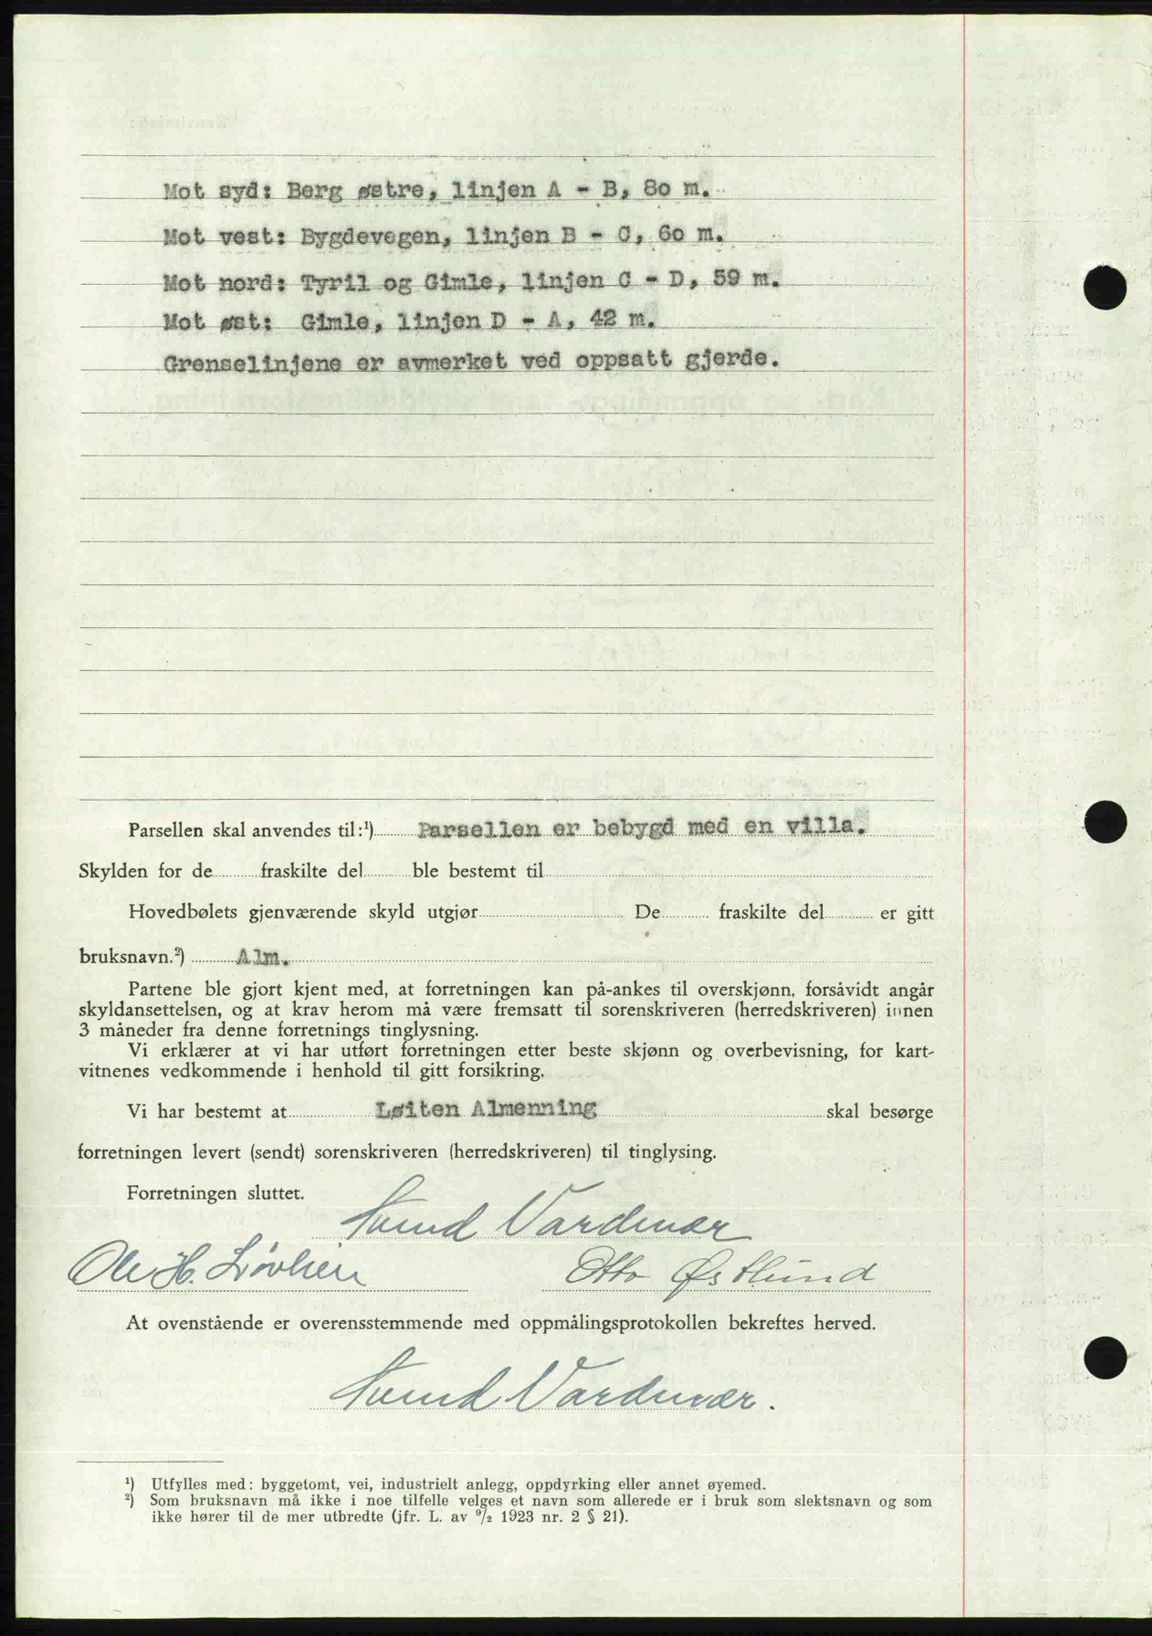 Mot syd: Berg østre, linjen A - B, 80 m.
Mot vest: Bygdevegen, linjen B - C, 60 m.
Mot nord: Tyril og Gimle, linjen C - D, 59 m.
Mot øst: Gimle, linjen D - A, 42 m.
Grenselinjene er avmerket ved oppsatt gjerde.
Parsellen skal anvendes til:¹) Parsellen er bebygd med en villa.
Skylden for de fraskilte del ble bestemt til
Hovedbølets gjenværende skyld utgjør De fraskilte del er gitt
bruksnavn.²) Alm.
Partene ble gjort kjent med, at forretningen kan på-ankes til overskjønn, forsåvidt angår
skyldansettelsen, og at krav herom må være fremsatt til sorenskriveren (herredskriveren) innen
3 måneder fra denne forretnings tinglysning.
Vi erklærer at vi har utført forretningen etter beste skjønn og overbevisning, for kart-
vitnenes vedkommende i henhold til gitt forsikring.
Vi har bestemt at Løiten Almenning skal besørge
forretningen levert (sendt) sorenskriveren (herredskriveren) til tinglysing.
Forretningen sluttet.
Vardenær
Ole H. Løvlien Otto Østlund
At ovenstående er overensstemmende med oppmålingsprotokollen bekreftes herved.
Vardenær.
¹) Utfylles med: byggetomt, vei, industrielt anlegg, oppdyrking eller annet øyemed.
²) Som bruksnavn må ikke i noe tilfelle velges et navn som allerede er i bruk som slektsnavn og som
ikke hører til de mer utbredte (jfr. L. av ⁹/₂ 1923 nr. 2 § 21).